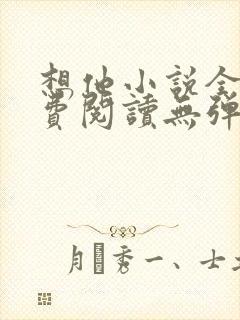 想他小说全
費閱讀無彈
月 秀一、士